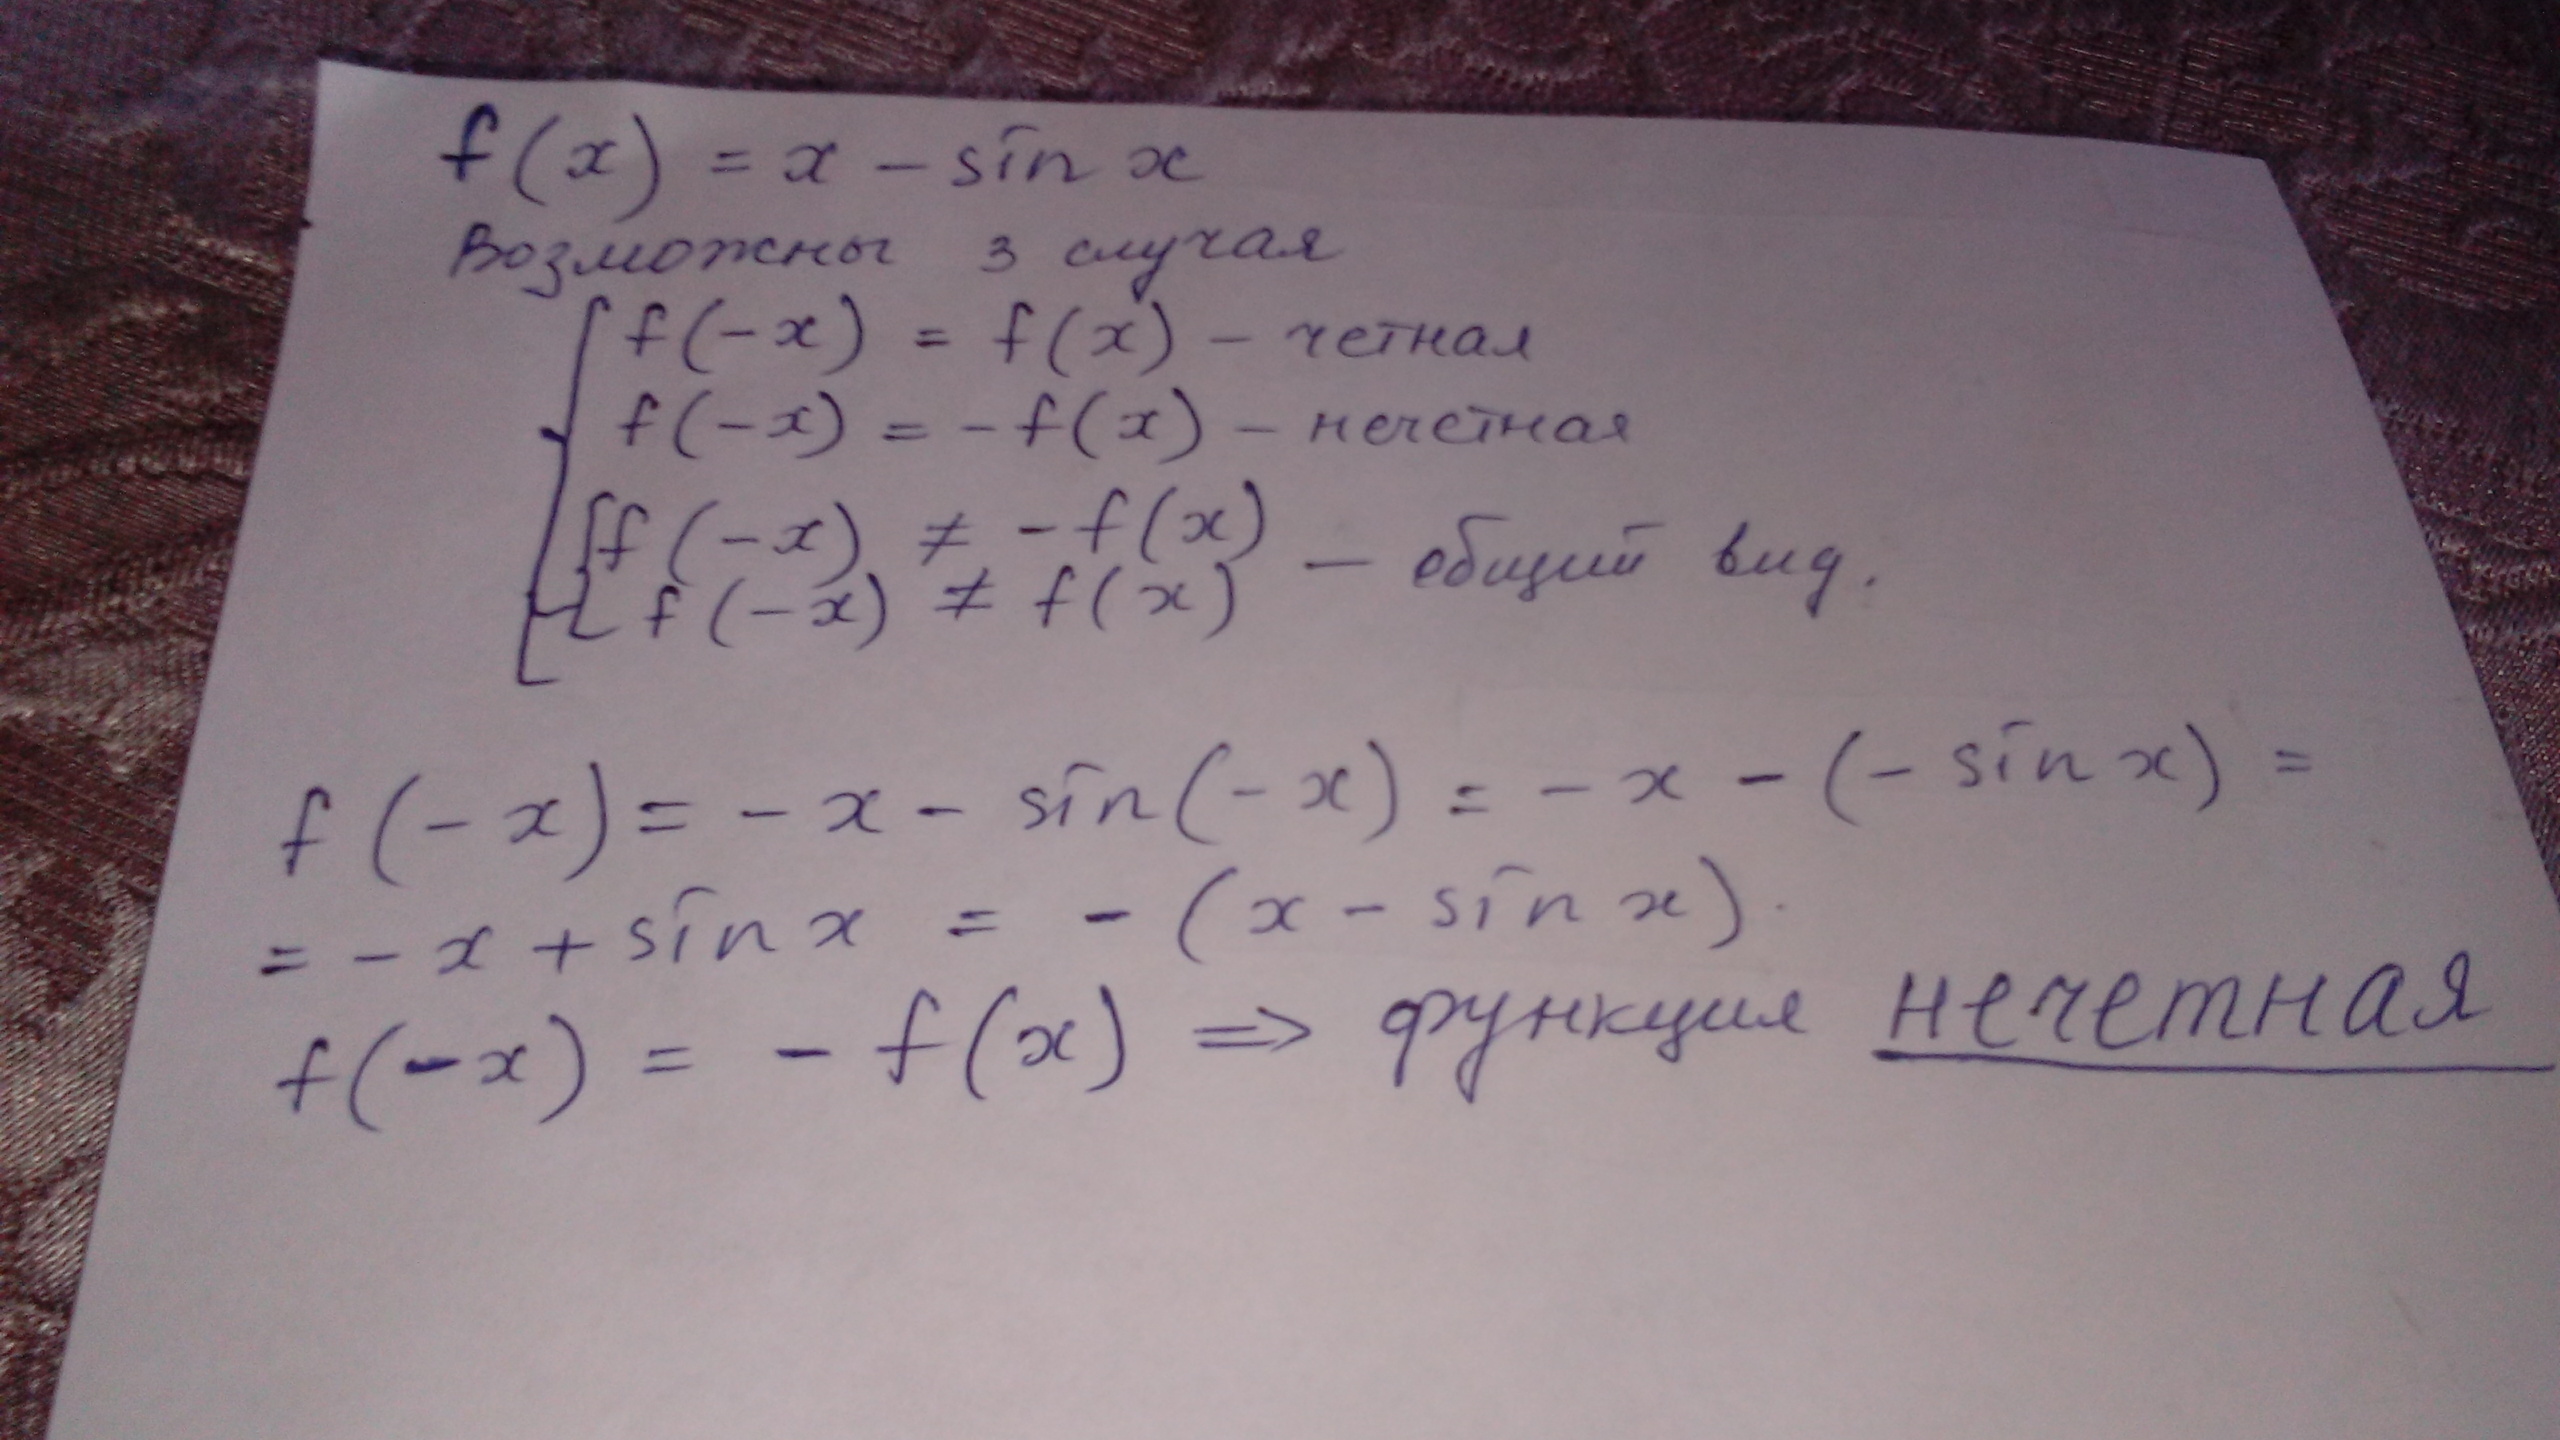 f(x) = x - sin x
Возможны 3 случая
f(-x) = f(x) - четная
f(-x) = -f(x) - нечетная
f(-x) ≠ -f(x)
f(-x) ≠ f(x) — общий вид.
f(-x) = -x - sin(-x) = -x - (-sin x) =
= -x + sin x = -(x - sin x).
f(-x) = -f(x) => функция нечетная